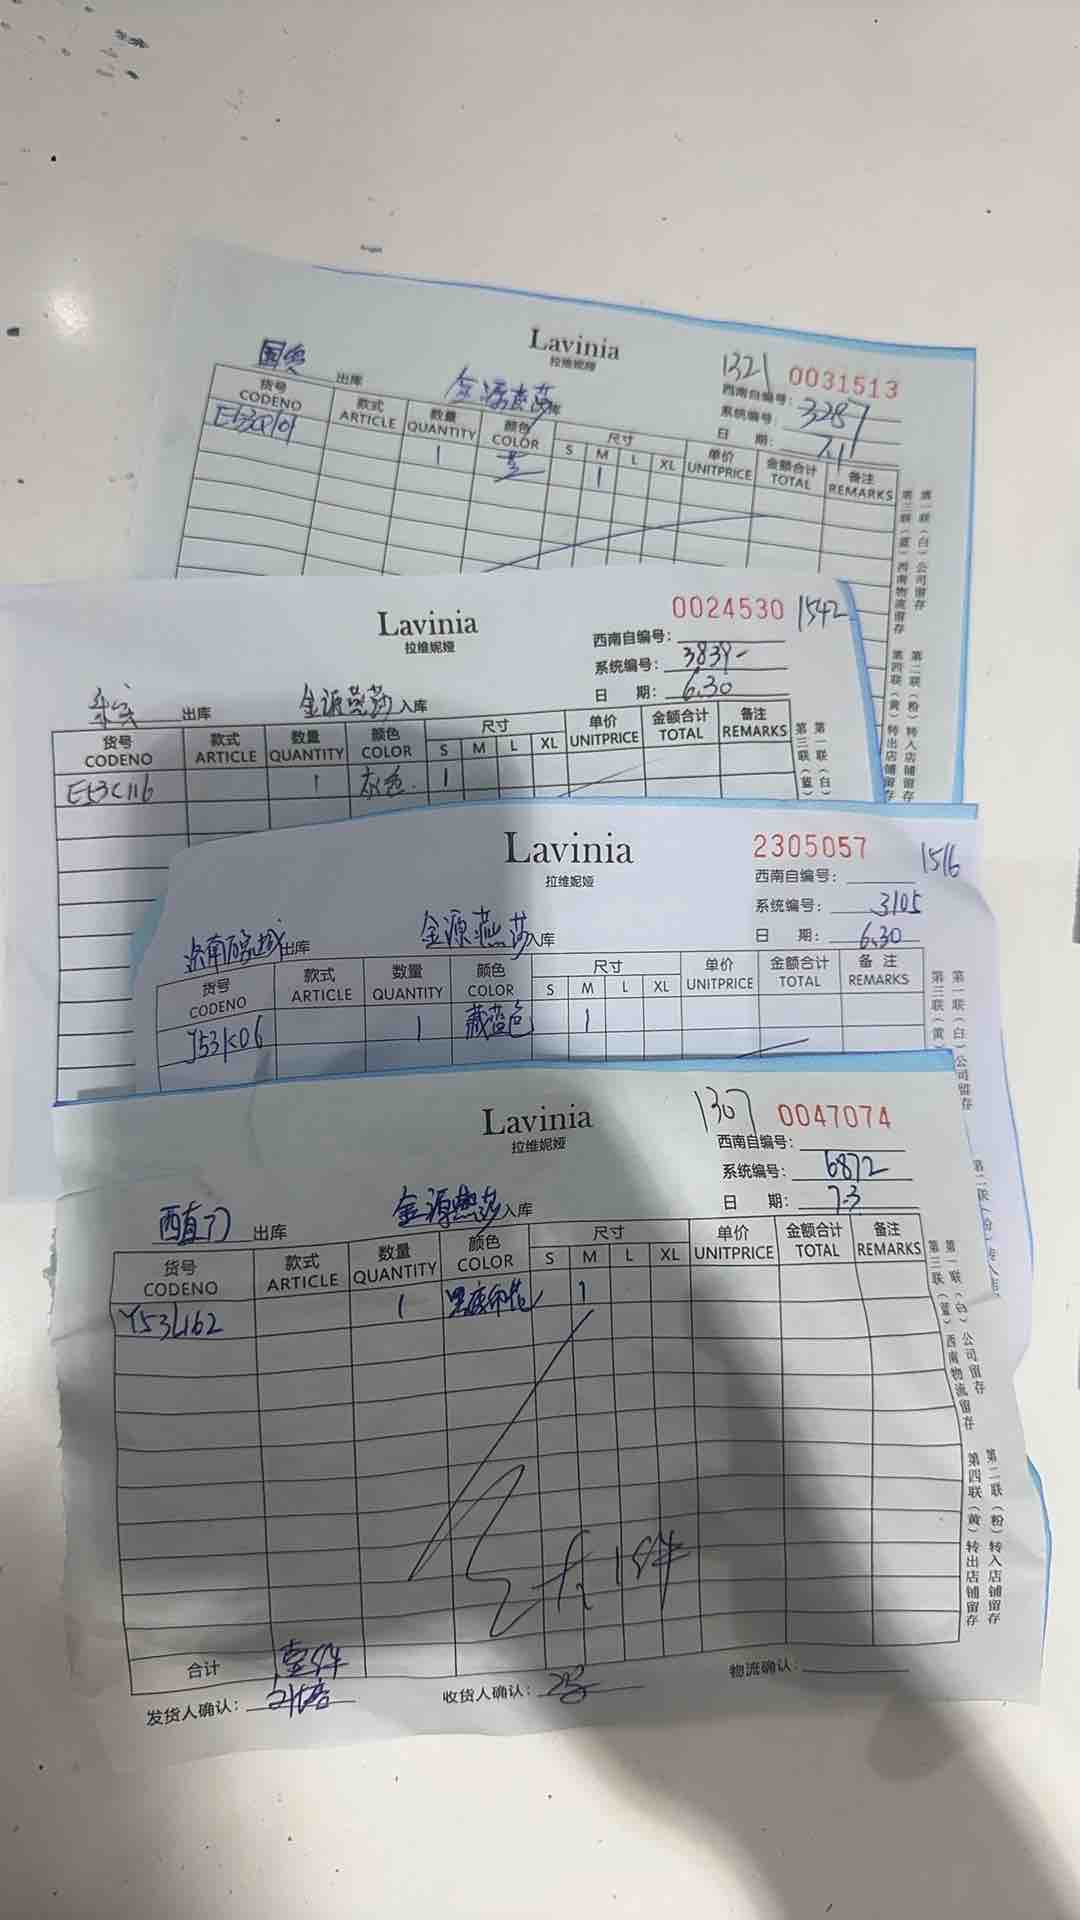 Lavinia
拉维妮娅
1321 0031513
西南自编号:
系统编号: 3287
日 期: 7.1
国贸 出库 金源燕莎 库
货号 CODENO 款式 ARTICLE 数量 QUANTITY 颜色 COLOR 尺寸 S M L XL 单价 UNITPRICE 金额合计 TOTAL 备注 REMARKS
1 1
第一联(白)公司留存
第三联(蓝)西南物流留存
第二联(粉)转入店铺留存
第四联(黄)转出店铺留存
Lavinia
拉维妮娅
0024530 1542
西南自编号:
系统编号: 3839
日 期: 6.30
出库 金源燕莎 入库
货号 CODENO 款式 ARTICLE 数量 QUANTITY 颜色 COLOR 尺寸 S M L XL 单价 UNITPRICE 金额合计 TOTAL 备注 REMARKS
E53C116 1 灰色 1
第一联(白)
第三联(蓝)
Lavinia
拉维妮娅
2305057 1516
西南自编号:
系统编号: 3105
日 期: 6.30
出库 金源燕莎 入库
货号 CODENO 款式 ARTICLE 数量 QUANTITY 颜色 COLOR 尺寸 S M L XL 单价 UNITPRICE 金额合计 TOTAL 备注 REMARKS
J531K06 1 藏蓝色 1
第一联(白)公司留存
第三联(黄)
Lavinia
拉维妮娅
1307 0047074
西南自编号:
系统编号: 6872
日 期: 7.3
西直门 出库 金源燕莎 入库
货号 CODENO 款式 ARTICLE 数量 QUANTITY 颜色 COLOR 尺寸 S M L XL 单价 UNITPRICE 金额合计 TOTAL 备注 REMARKS
Y53L162 1 黑底印花 1
共1件
合计 壹件
发货人确认: 收货人确认: 物流确认:
第一联(白)公司留存
第三联(蓝)西南物流留存
第二联(粉)转入店铺留存
第四联(黄)转出店铺留存